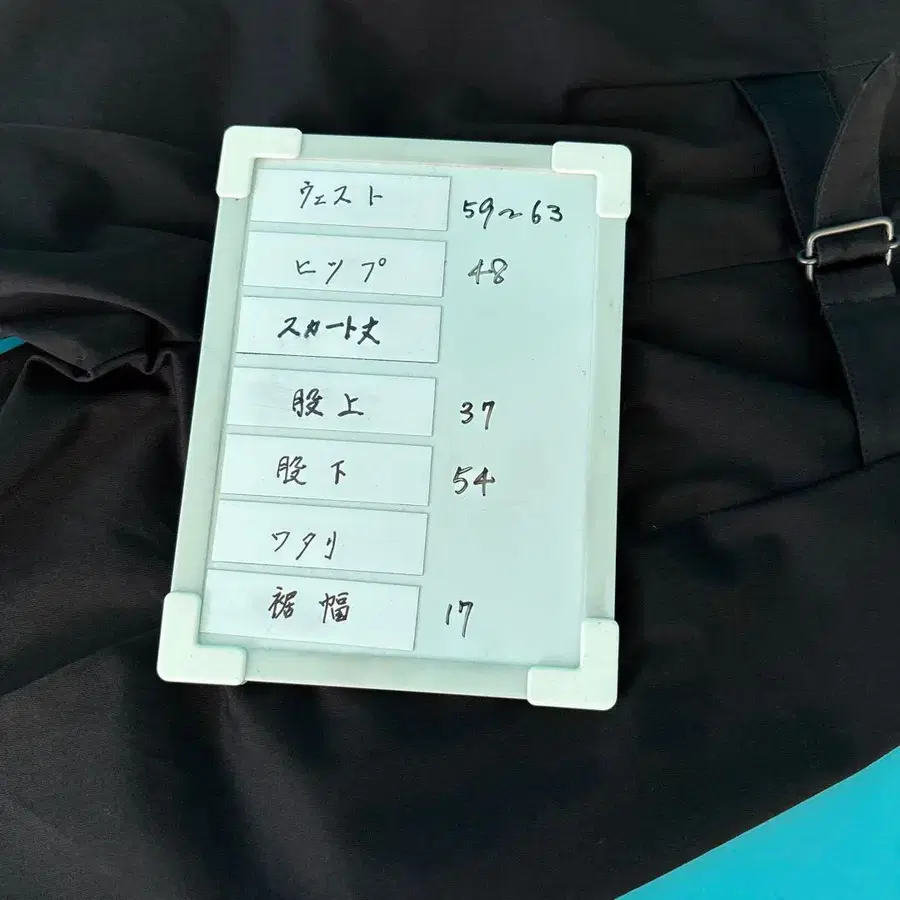 ウェスト 59~63
ヒップ 48
スカート丈
股上 37
股下 54
ワタリ
裾幅 17